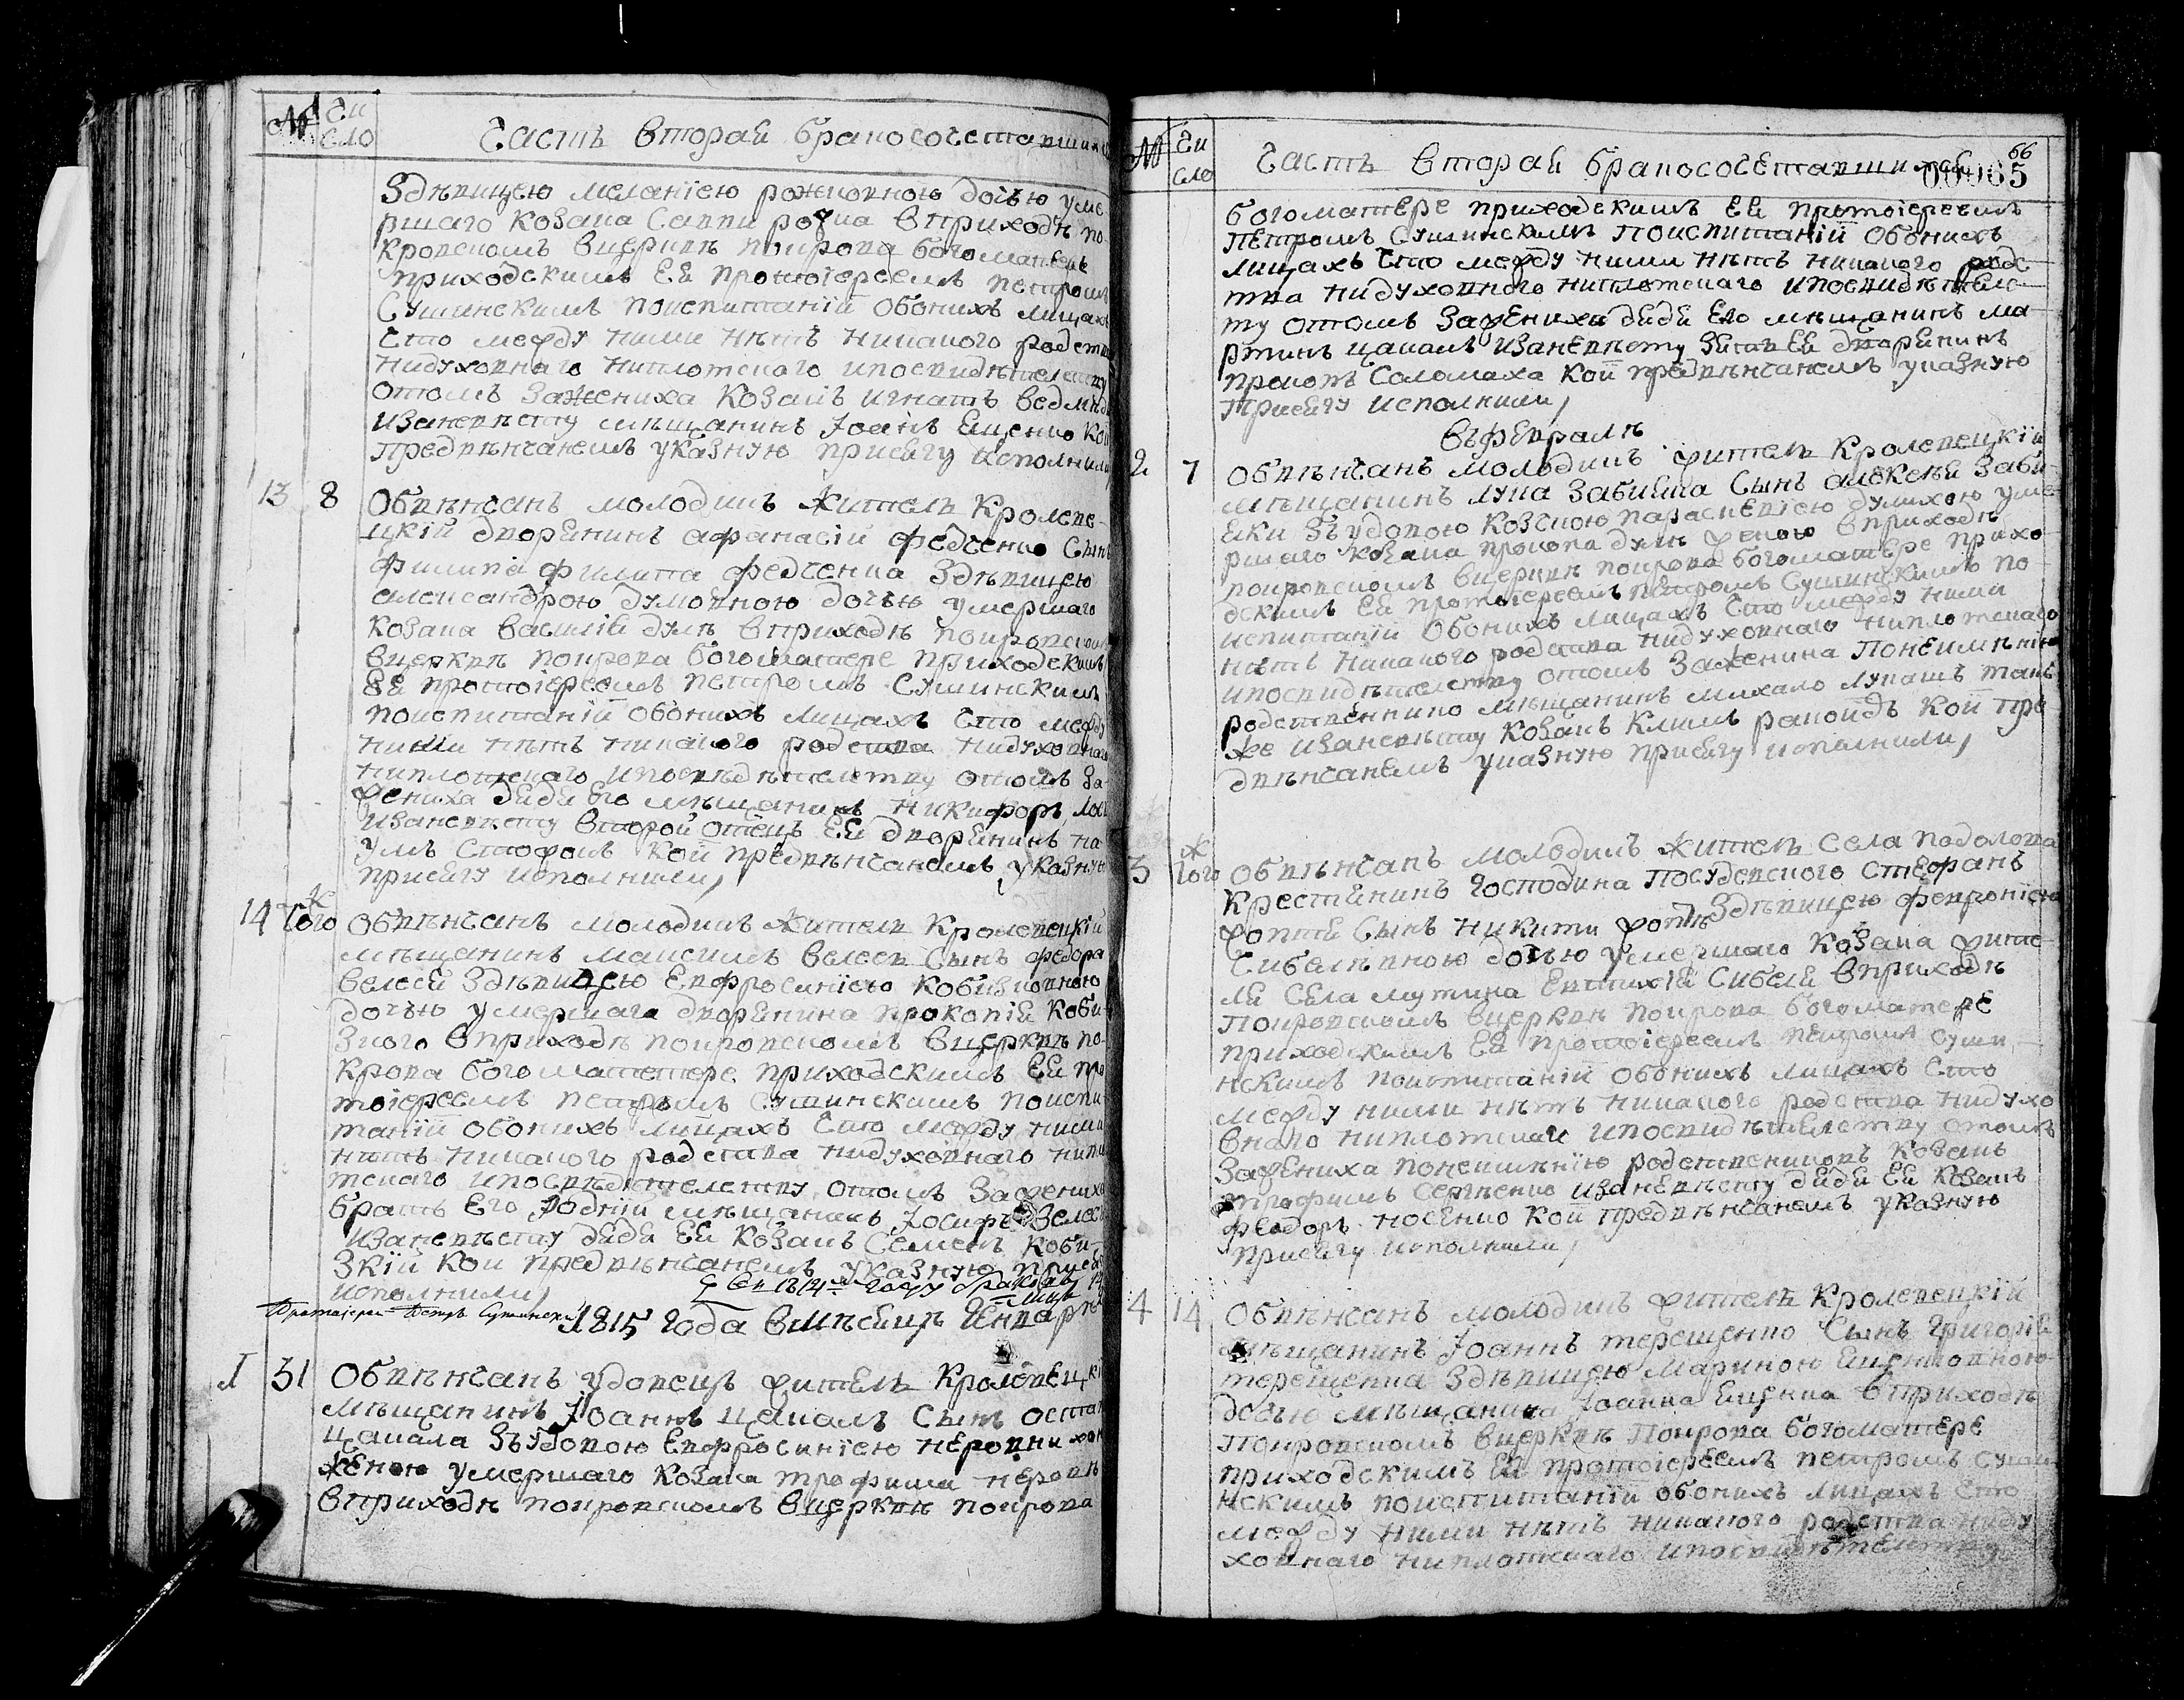 № Чи
сло
Часть вторая бракосочетавшихся
Здѣвицею меланїею рожковною дочъю уме
ршаго козака Саввы рожка вприходѣ по
кровскомъ вцерквѣ покрова богоматере
приходскимъ Ея протоїереемъ петромъ
Сушинскимъ поиспитанїи обоихъ лицахъ
Что между ними нѣтъ никакого родства
нидуховнаго ниплотскаго ипосвидѣтелству
отомъ зажениха козакъ игнатъ ведмѣдь
изаневѣсту мѣщанинъ Їоанъ Ещенко кои
предвѣнчанемъ указную присягу исполнили,
13 8 Обвѣнчанъ молодикъ житель Кролеве-
цкїй дворянинъ афанасїй федченко Сынъ
филипа федченка Здѣвицею
александрою думовною дочъю умершаго
козака василїя думи вприходѣ покровском
вцерквѣ покрова богоматере приходскимъ
Ея протоїереемъ петромъ Сушинскимъ
поиспитанїи обоихъ лицахъ Что между
ними нѣтъ никакого родства нидуховнаго
ниплотскаго ипосвѣдѣтелству отомъ за-
жениха дядя Его мѣщанинъ никифоръ
изаневѣсту второй отецъ Ея дворянинъ на
умъ кои предвѣнчанемъ указную
присягу исполнили,
14 того ж Обвѣнчанъ молодикъ житель Кролевецкїй
мѣщанинъ максимъ велесь Сынъ федора
велеся Здѣвицею Евфросинїею кобизковною
дочъю умершага дворянина прокопїя коби
зкого вприходѣ покровскомъ вцерквѣ по-
крова богоматетере приходскимъ Ея про
тоїереемъ петромъ Сушинскимъ поиспи
танїи обоихъ лицахъ Что между ними
нѣтъ никакого родства нидуховнаго нипло
тскаго ипосвѣдѣтелству отомъ зажениха
братъ Его родній мѣщанинъ Їосифъ Велесь
изаневѣсту дядя Ея козакъ Семенъ коби-
зкїй кои предвѣнчанемъ указную присягу
исполнили,
Протоїерей Петръ Сушински
1815 года вмѣсяцѣ Генварѣ
1 31 Обвѣнчанъ удовецъ житель Кролевецкї
мѣщанинъ Їоаннъ цакалъ Сынъ остап
цакала Зъудовою Евфросинїею неровнихою
женою умершаго козака трофима неровн
вприходѣ покровскомъ вцерквѣ покрова
№ Чи
сло
Часть вторая бракосочетавшихся
66
00065
богоматере приходскимъ Ея протоїереемъ
петромъ Сушинскимъ поиспитанїи обоихъ
лицахъ Что между ними нѣтъ никакого родс
тва нидуховного ниплотскаго ипосвидѣтелс
ту отомъ зажениха дядя Его мѣщанинъ ма
ртинъ цакалъ изаневѣсту зять Ея дворянинъ
прокопъ Соломаха кои предвѣнчанемъ указную
присягу исполнили,
въфевралѣ
2 7 Обвѣнчанъ молодикъ житель Кролевецкїй
мѣщанинъ лука забияка Сынъ алексѣя заби
яки Зъудовою козачкою параскевїею думихою уме
ршаго козака прокопа думи женою вприходѣ
покровскомъ вцерквѣ покрова богоматере прихо
дскимъ Ея протоїереемъ петромъ Сушинскимъ по
испитанїи обоихъ лицахъ Что между ними
нѣтъ никакого родства нидуховнаго ниплотскаго
ипосвидѣтелству отомъ заженика понеимѣнїю
родственнико мѣщанинъ михало лукашъ такъ
же изаневѣсту козакъ климъ ракоидъ кои пре
двѣнчанемъ указную присягу исполнили,
3 того ж Обвѣнчанъ молодикъ житель Села подолова
крестянинъ господина посудевского стефанъ
жовтяй Сынъ никити жовтя Здѣвицею февронїею
Сибелѣвною дочъю умершаго козака жите-
ля Села мутина Евтихїя Сибеля вприходѣ
покровскомъ вцерквѣ покрова богоматере
приходскимъ Ея протоїереемъ петромъ Суши-
нскимъ поиспитанїи обоихъ лицахъ Что
между ними нѣтъ никакого родства нидухо
внаго ниплотскаго ипосвидѣтелству отомъ
зажениха понеимѣнїю родственниковъ козакъ
трофимъ Сергѣенко изаневѣсту дядя Ея козакъ
феодоръ носенко кои предвѣнчанемъ указную
присягу исполнили,
4 14 Обвѣнчанъ молодикъ житель Кролевецкїй
мѣщанинъ Їоаннъ терещенко Сынъ григорїя
терещенка Здѣвицею мариною Ещенковною
дочъю мѣщанина Їоанна Ещенка вприходѣ
покровскомъ вцерквѣ покрова богоматере
приходскимъ Ея протоїереемъ петромъ Суши
нскимъ поиспитанїи обоихъ лицахъ Что
между ними нѣтъ никакого родства ниду
ховнаго ниплотскаго ипосвидѣтелству